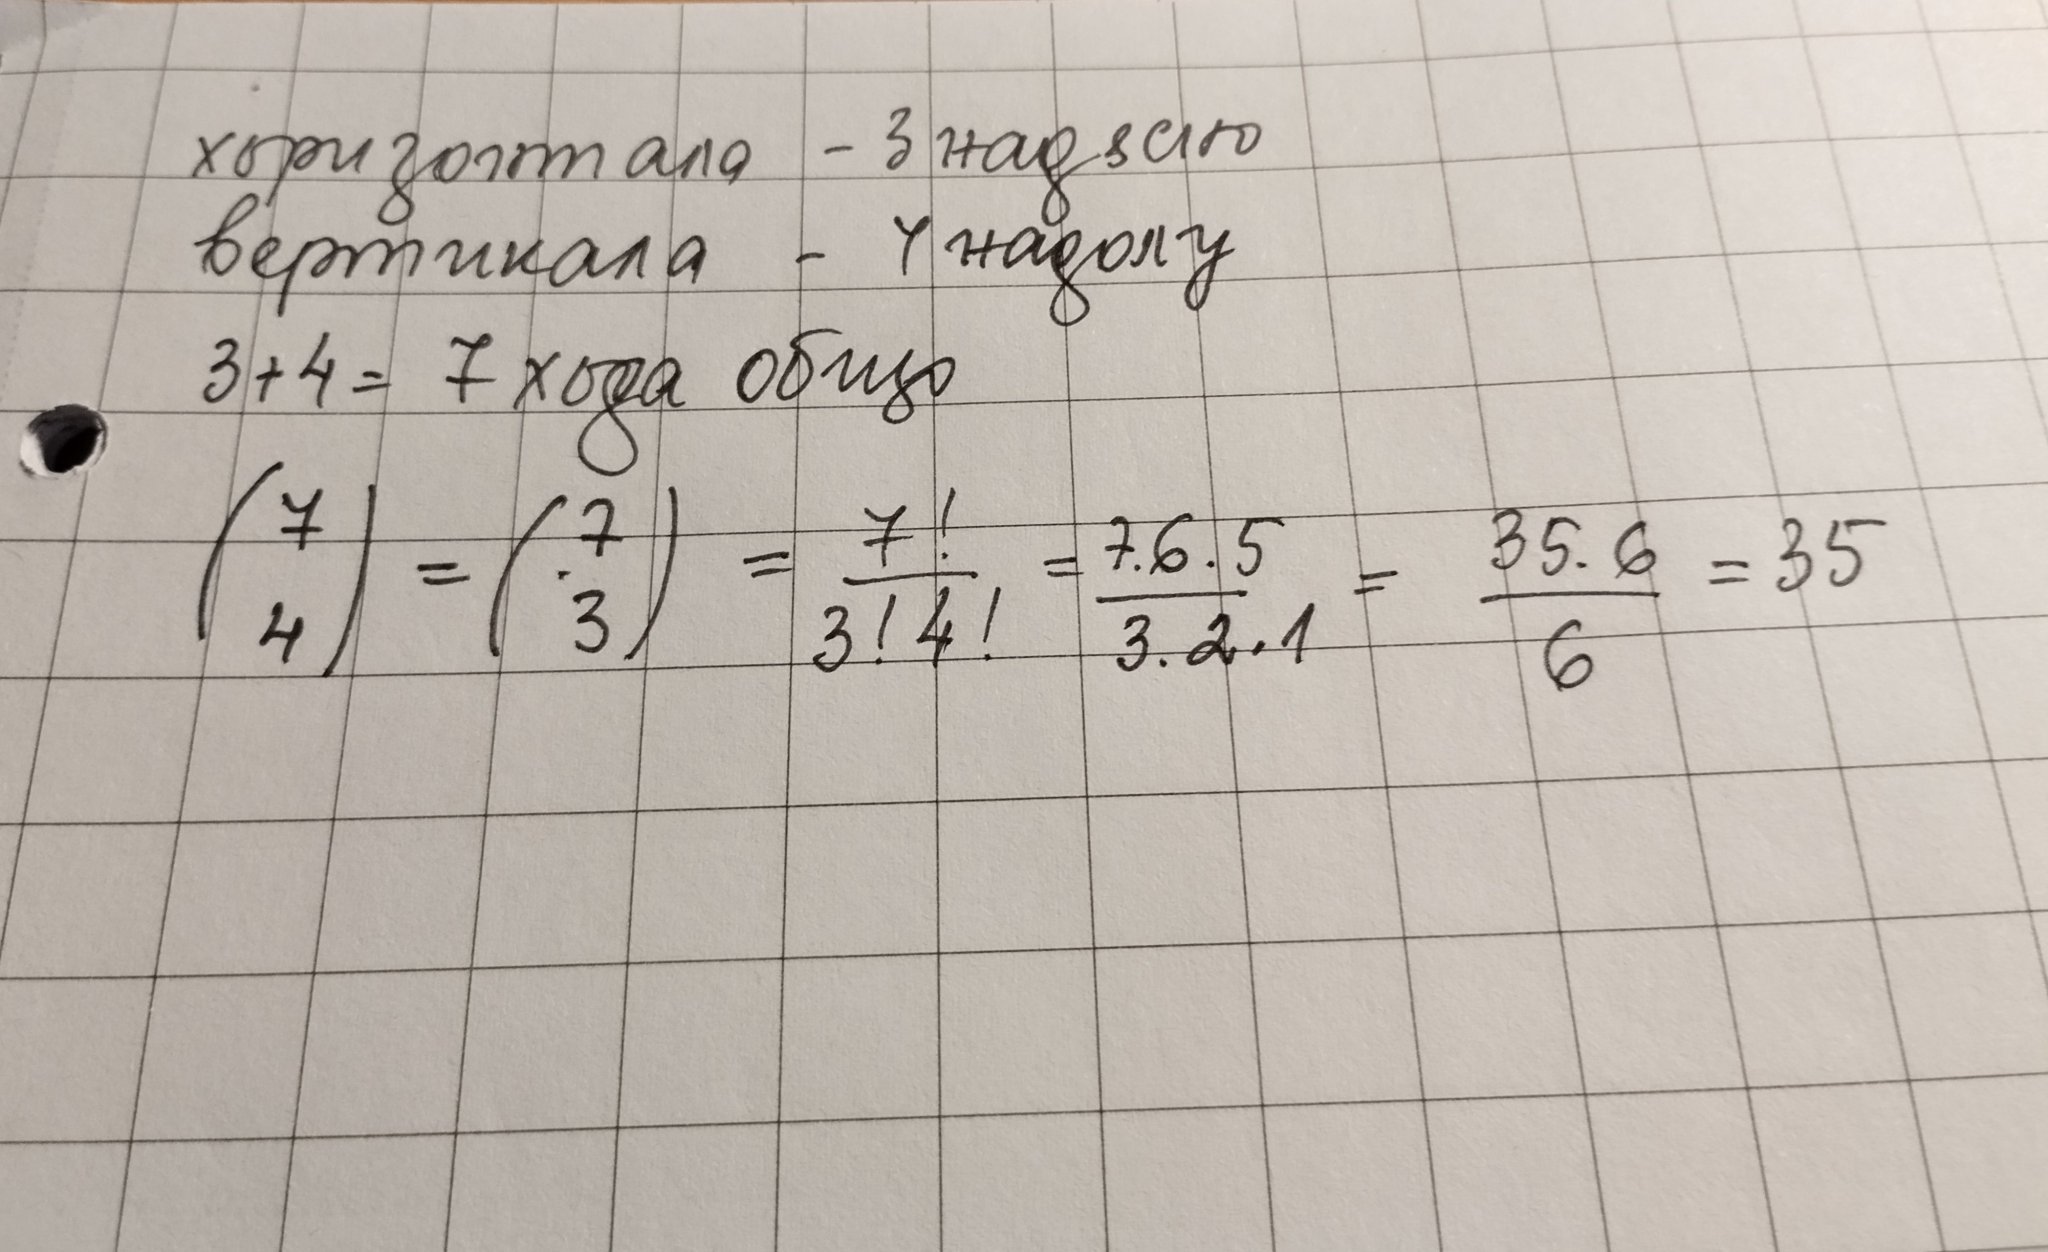 хоризонтала - 3 надясно
вертикала - 4 надолу
3+4= 7 хода общо
(7 4) = (7 3) = 7!/3!4! = 7.6.5/3.2.1 = 35.6/6 = 35